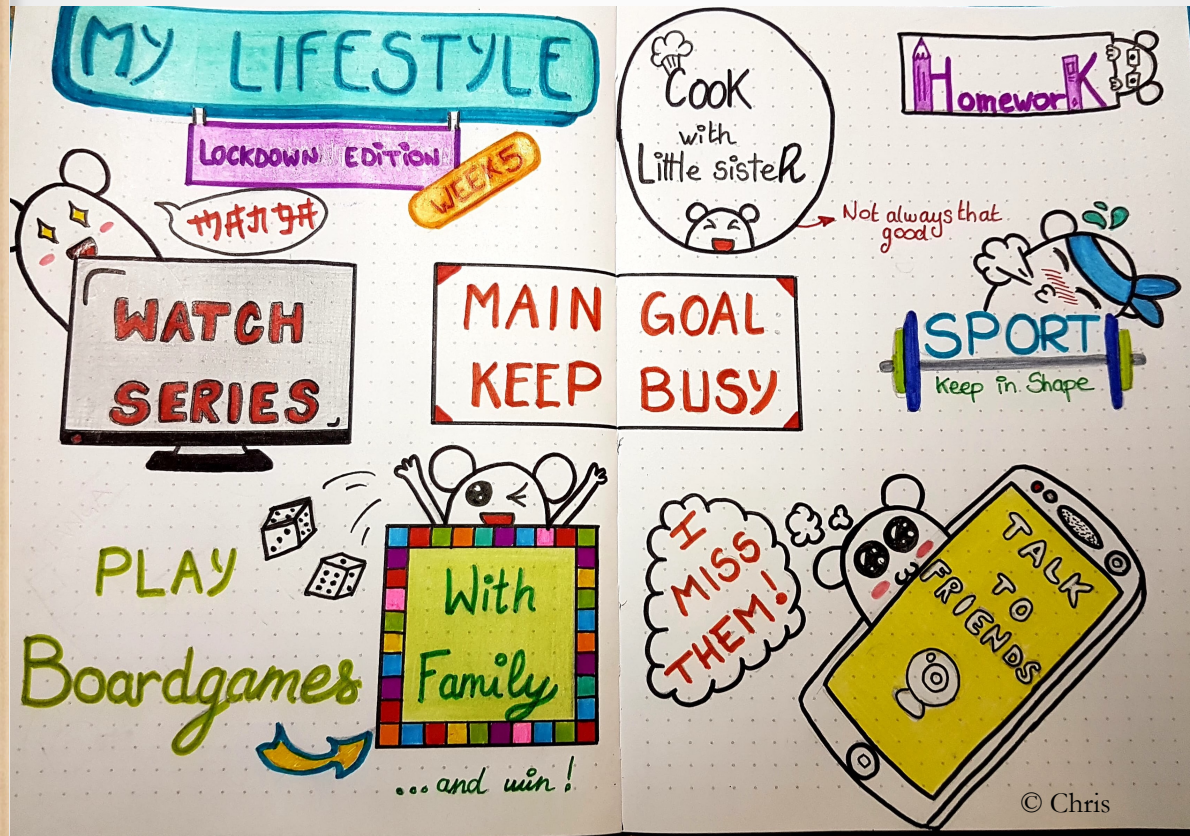 MY LIFESTYLE
LOCKDOWN EDITION
WEEK 5
WATCH
SERIES
MAIN GOAL
KEEP BUSY
PLAY
Boardgames
With
Family
...and win!
Cook
with
Little sisteR
Not always that
good
HomeworK
SPORT
Keep in Shape
I
MISS
THEM!
TALK
TO
FRIENDS
© Chris